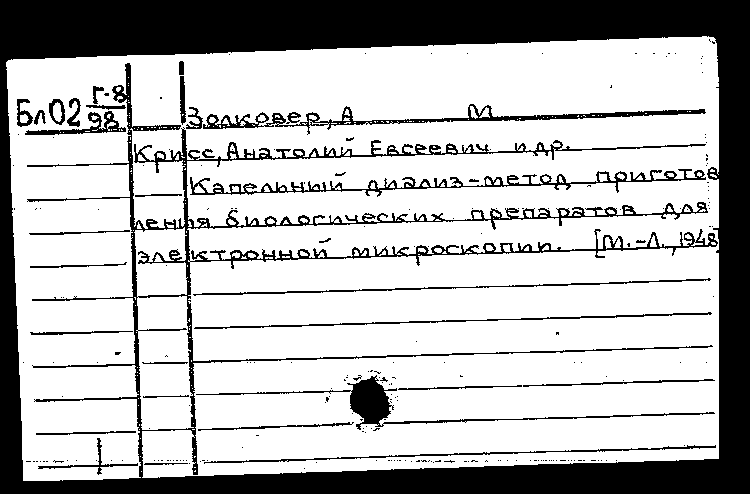 Бл02 Г-8/98
Золковер, А М
Крисс, Анатолий Евсеевич и др.
Капельный диализ-метод приготов
ления биологических препаратов для
электронной микроскопии. [М.-Л., 1948]